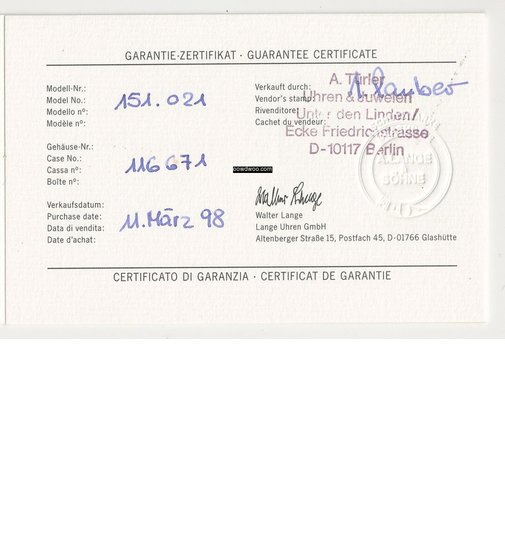 GARANTIE-ZERTIFIKAT · GUARANTEE CERTIFICATE
Modell-Nr.:
Model No.:
Modello nº:
Modèle nº:
151.021
Verkauft durch:
Vendor's stamp:
Rivenditore:
Cachet du vendeur:
A. Türler
Uhren & Juwelen
Unter den Linden/
Ecke Friedrichstrasse
D-10117 Berlin
Gehäuse-Nr.:
Case No.:
Cassa nº:
Boîte nº:
116671
oowdwoo.com
A. LANGE
SÖHNE
Verkaufsdatum:
Purchase date:
Data di vendita:
Date d'achat:
11. März 98
Walter Lange
Walter Lange
Lange Uhren GmbH
Altenberger Straße 15, Postfach 45, D-01766 Glashütte
CERTIFICATO DI GARANZIA · CERTIFICAT DE GARANTIE